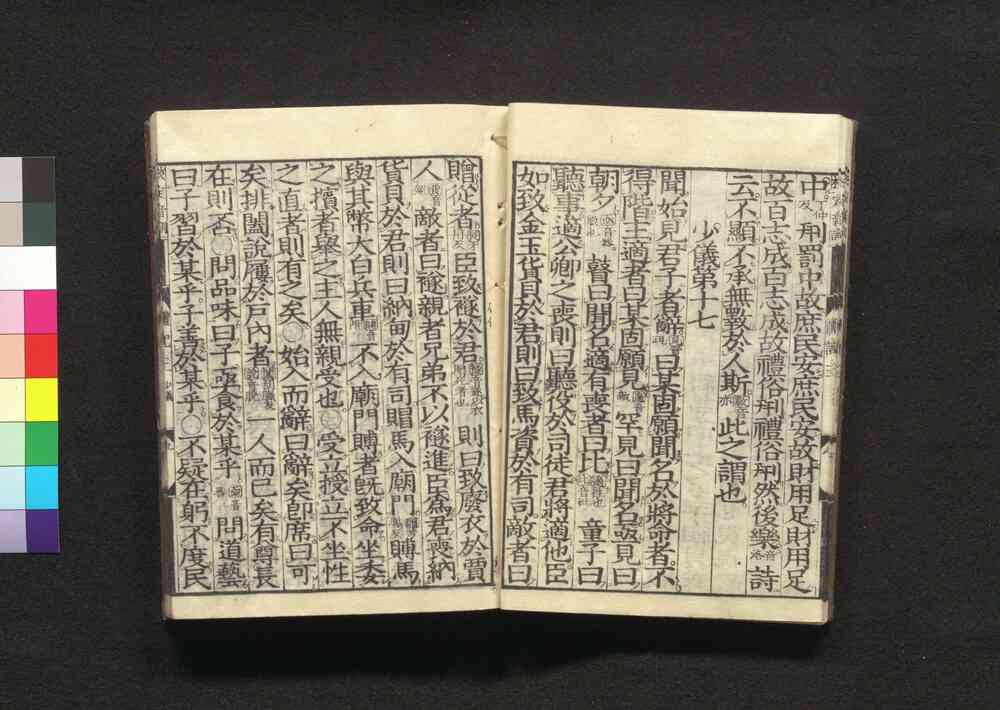 中刑罰中故庶民安庶民安故財用足財用足
故百志成百志成故禮俗刑禮俗刑然後樂詩
云不顯不承無斁於人斯此之謂也
少儀第十七
聞始見君子者辭曰某固願聞名於將命者不
得階主適者曰某固願見罕見曰聞名亟見曰
朝夕瞽曰聞名適有喪者曰比童子曰
聽事適公卿之喪則曰聽役於司徒君將適他臣
如致金玉貨貝於君則曰致馬資於有司敵者曰
贈從者臣致襚於君則曰致廢衣於賈
人敵者曰襚親者兄弟不以襚進臣爲君喪納
貨貝於君則曰納甸於有司賵馬入廟門賻馬
與其幣大白兵車不入廟門賻者旣致命坐委
之擯者舉之主人無親受也○受立授立不坐性
之直者則有之矣○始入而辭曰辭矣卽席曰可
矣排闔說屨於戶內者一人而已矣有尊長
在則否○問品味曰子亟食於某乎問道藝
曰子習於某乎子善於某乎○不疑在躬不度民